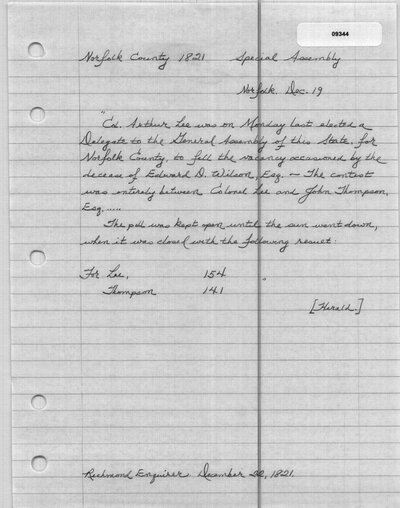 09344
Norfolk County 1821 Special Assembly
Norfolk. Dec. 19
"Col. Arthur Lee was on Monday last elected a
Delegate to the General Assembly of this State, for
Norfolk County, to fill the vacancy occasioned by the
decease of Edward D. Wilson, Esq. — The contest
was entirely between Colonel Lee and John Thompson,
Esq.....
The poll was kept open until the sun went down,
when it was closed with the following result:
For Lee, 154
Thompson 141
[Herald.]
Richmond Enquirer. December 22, 1821.